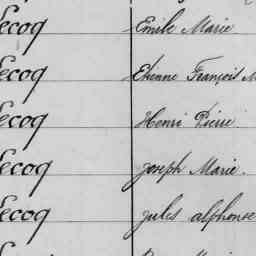 Lecoq Emile Marie
Lecoq Etienne François M
Lecoq Henri Pierre
Lecoq Joseph Marie.
Lecoq Jules alphonse